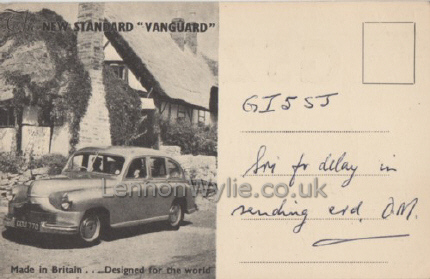 The NEW STANDARD "VANGUARD"
Made in Britain... Designed for the world
GI5SJ
Sri fr delay in
sending crd. O.M.
LennonWylie.co.uk